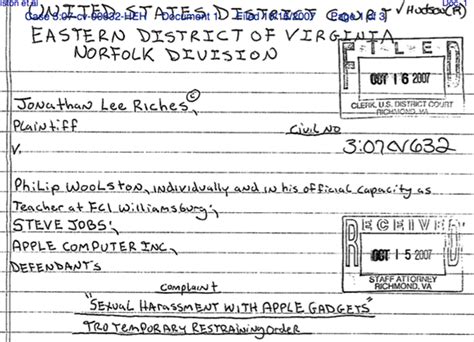 lston et al
Doc. 1
Case 3:07-cv-00632-HEH Document 1 Filed 10/16/2007 Page 1 of 3
UNITED STATES DISTRICT COURT ✓Hudson(R)
EASTERN DISTRICT OF VIRGINIA
NORFOLK DIVISION
FILED
OCT 16 2007
CLERK, U.S. DISTRICT COURT
RICHMOND, VA
Jonathan Lee Riches©,
Plaintiff
Civil No
V.
3:07CV632
Philip Woolston, individually and in his official capacity as
Teacher at FCI Williamsburg;
STEVE JOBS;
APPLE COMPUTER INC,
DEFENDANT'S
RECEIVED
OCT 15 2007
STAFF ATTORNEY
RICHMOND, VA
complaint
"SEXUAL HARASSMENT WITH APPLE GADGETS"
TRO TEMPORARY RESTRAINING ORDER